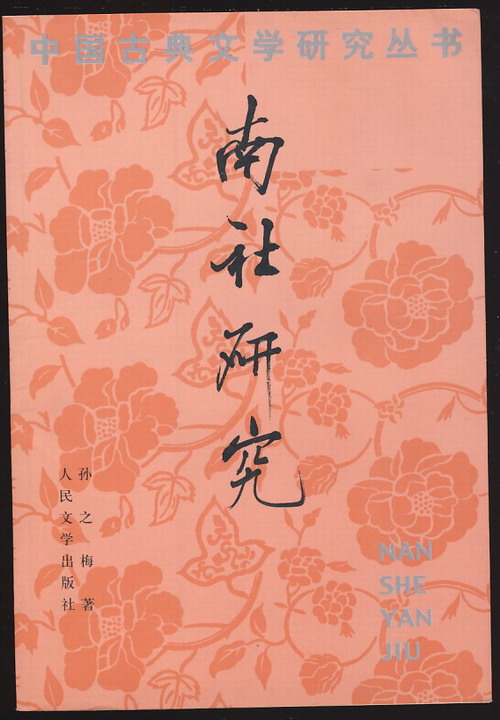 中国古典文学研究丛书
南社研究
孙之梅 著
人民文学出版社
NAN
SHE
YAN
JIU